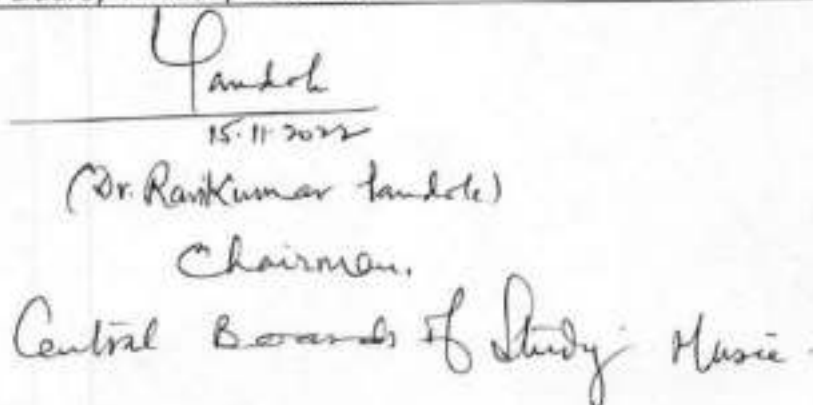 Pandole
15.11.2022
(Dr. RaviKumar Pandole)
Chairman.
Central Boards of Study Music.